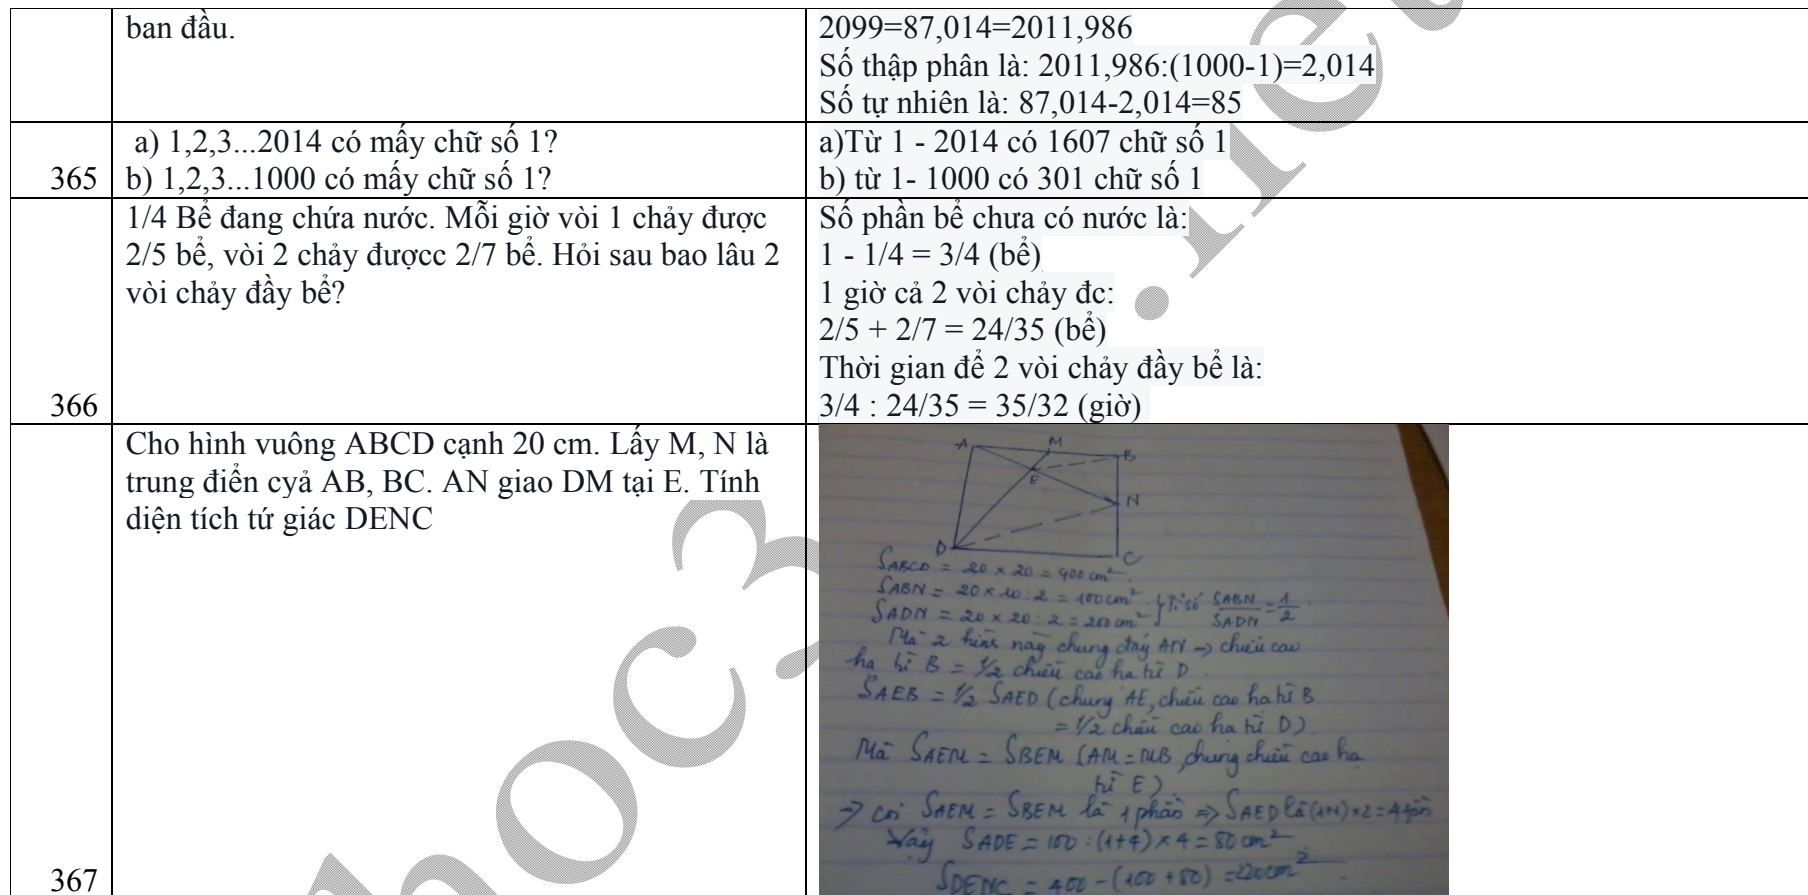 ban đầu.
2099=87,014=2011,986
Số thập phân là: 2011,986:(1000-1)=2,014
Số tự nhiên là: 87,014-2,014=85
365
a) 1,2,3...2014 có mấy chữ số 1?
b) 1,2,3...1000 có mấy chữ số 1?
a)Từ 1 - 2014 có 1607 chữ số 1
b) từ 1- 1000 có 301 chữ số 1
366
1/4 Bể đang chứa nước. Mỗi giờ vòi 1 chảy được
2/5 bể, vòi 2 chảy đượcc 2/7 bể. Hỏi sau bao lâu 2
vòi chảy đầy bể?
Số phần bể chưa có nước là:
1 - 1/4 = 3/4 (bể)
1 giờ cả 2 vòi chảy đc:
2/5 + 2/7 = 24/35 (bể)
Thời gian để 2 vòi chảy đầy bể là:
3/4 : 24/35 = 35/32 (giờ)
367
Cho hình vuông ABCD cạnh 20 cm. Lấy M, N là
trung điển cyả AB, BC. AN giao DM tại E. Tính
diện tích tứ giác DENC
A M B
E
N
D C
SABCD = 20 × 20 = 400 cm²
SABN = 20 × 10 : 2 = 100 cm² } Tỉ số SABN/SADN = 1/2
SADN = 20 × 20 : 2 = 200 cm²
Mà 2 hình này chung đáy AN → chiều cao
hạ từ B = 1/2 chiều cao hạ từ D.
SAEB = 1/2 SAED (chung AE, chiều cao hạ từ B
= 1/2 chiều cao hạ từ D)
Mà SAEM = SBEM (AM = MB, chung chiều cao hạ
từ E)
→ coi SAEM = SBEM là 1 phần ⇒ SAED là (1+1)×2=4 phần
Vậy SADE = 100 : (1+4) × 4 = 80 cm²
SDENC = 400 - (100 + 80) = 220cm²
hoc3
.net